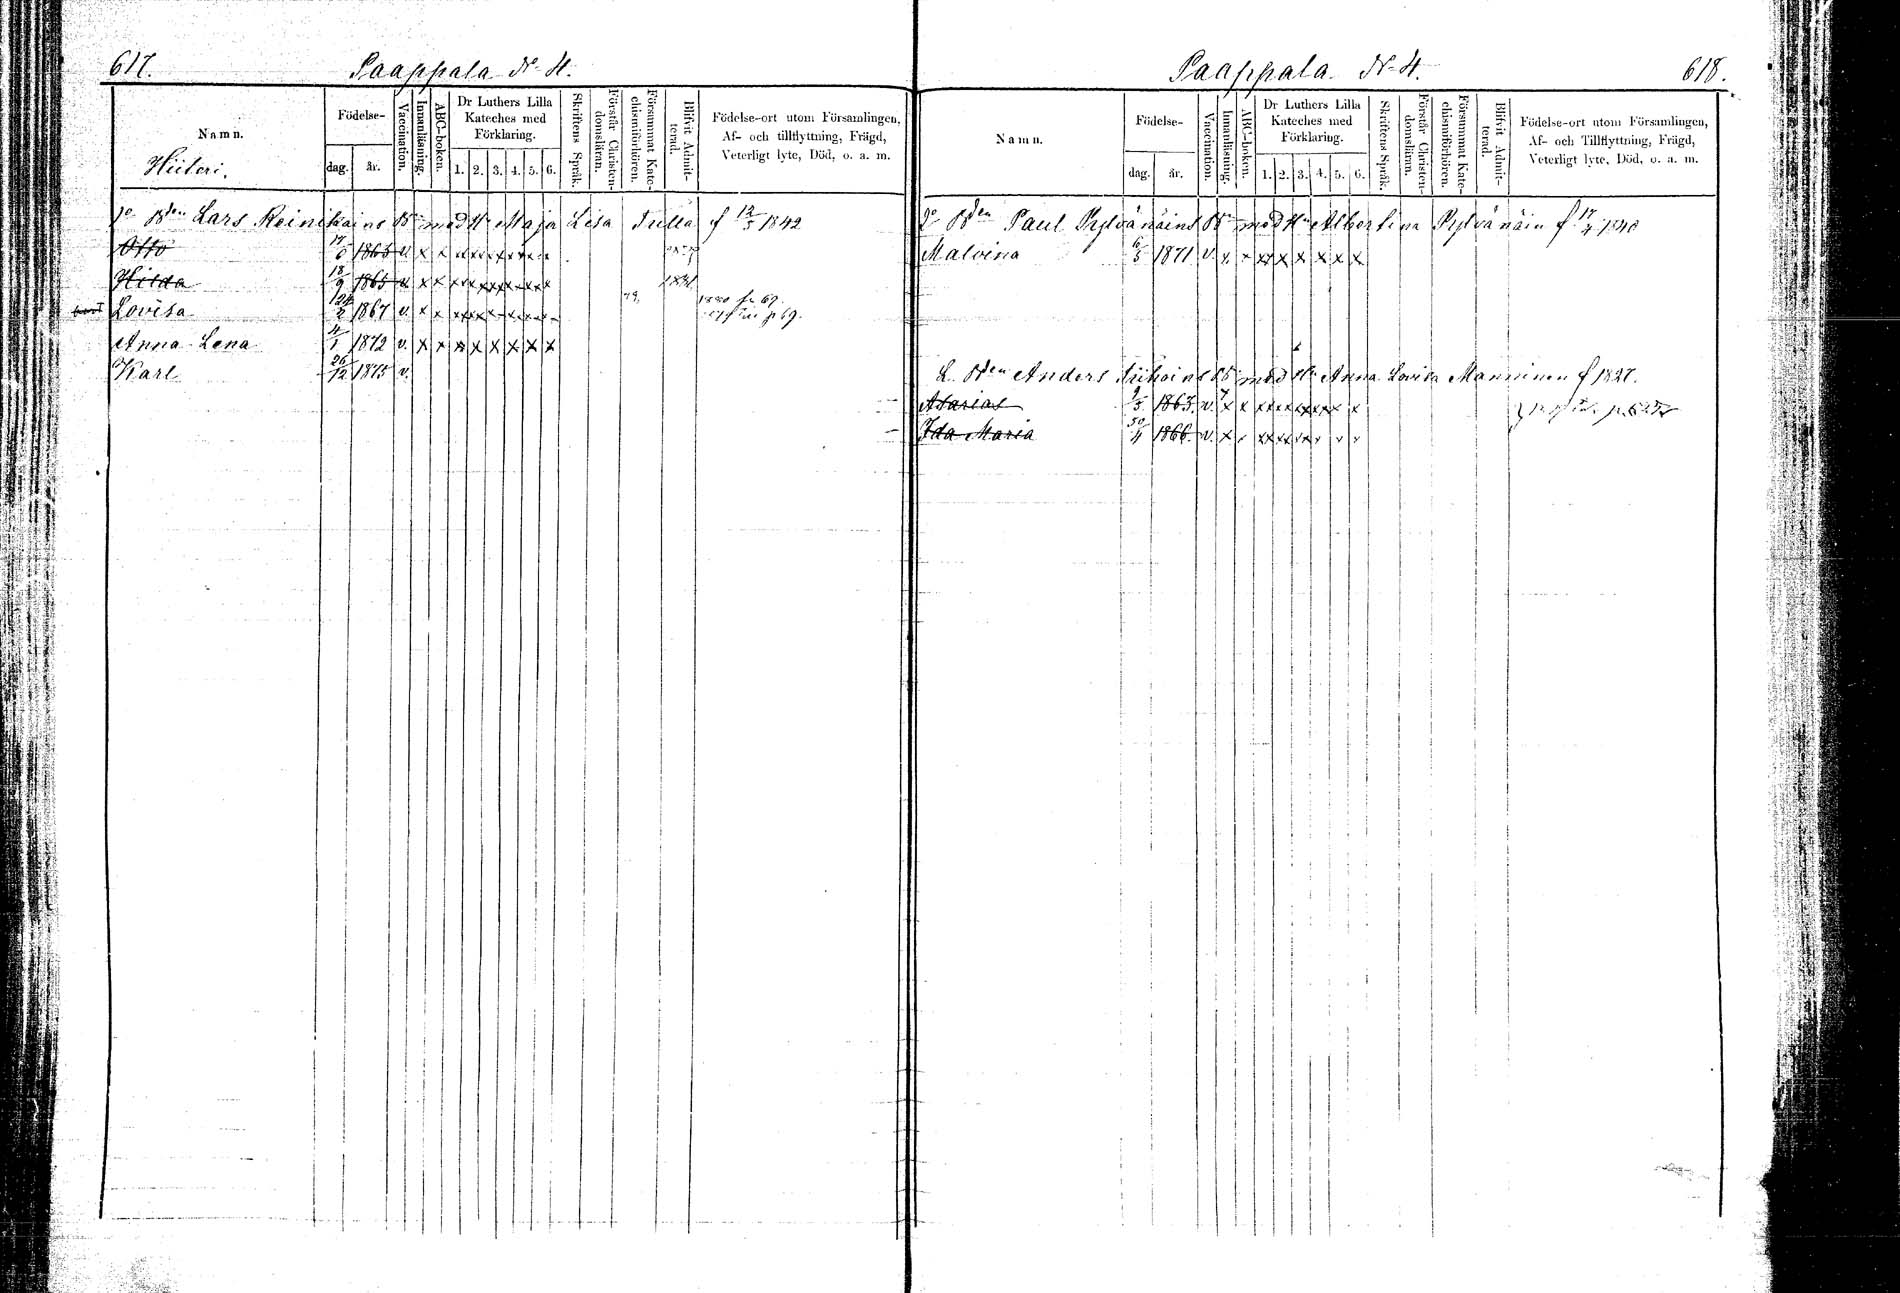 617. Paappala No 4.
Namn.
Födelse-
dag. år.
Vaccination.
Innanläsning.
ABC-boken.
Dr Luthers Lilla
Kateches med
Förklaring.
1. 2. 3. 4. 5. 6.
Skriftens Språk.
Förstår Christen-
domsläran.
Försummat Kate-
chismiförhören.
Blifvit Admit-
terad.
Födelse-ort utom Församlingen,
Af- och tillflyttning, Frägd,
Veterligt lyte, Död, o. a. m.
Hiiteri.
Bden Lars Reinikains Bn med Hu Maja Lisa Tulla f 12/5 1842
Otto 17/6 1863 v. x x x x x x x x
Hilda 18/9 1865 v. x x x x x x x x
Lovisa 1867 v. x x x x x x x x 79.
Anna Lena 4/1 1872 v. x x x x x x x x
Karl 26/12 1875 v.
Paappala No 4. 618.
Namn.
Födelse-
dag. år.
Vaccination.
Innanläsning.
ABC-boken.
Dr Luthers Lilla
Kateches med
Förklaring.
1. 2. 3. 4. 5. 6.
Skriftens Språk.
Förstår Christen-
domsläran.
Försummat Kate-
chismiförhören.
Blifvit Admit-
terad.
Födelse-ort utom Församlingen,
Af- och Tillflyttning, Frägd,
Veterligt lyte, Död, o. a. m.
Bden Paul Pylvänäins Bn med Hu Albertina Pylvänäin f 17/4 1840
Malvina 6/5 1871 v. x x x x x x x x
L. Bden Anders Bn med Hu Anna Lovisa Manninen f 1827.
Asarias 1863. v. x x x x x x x x
Ida Maria 30/4 1866. v. x x x x x x x x